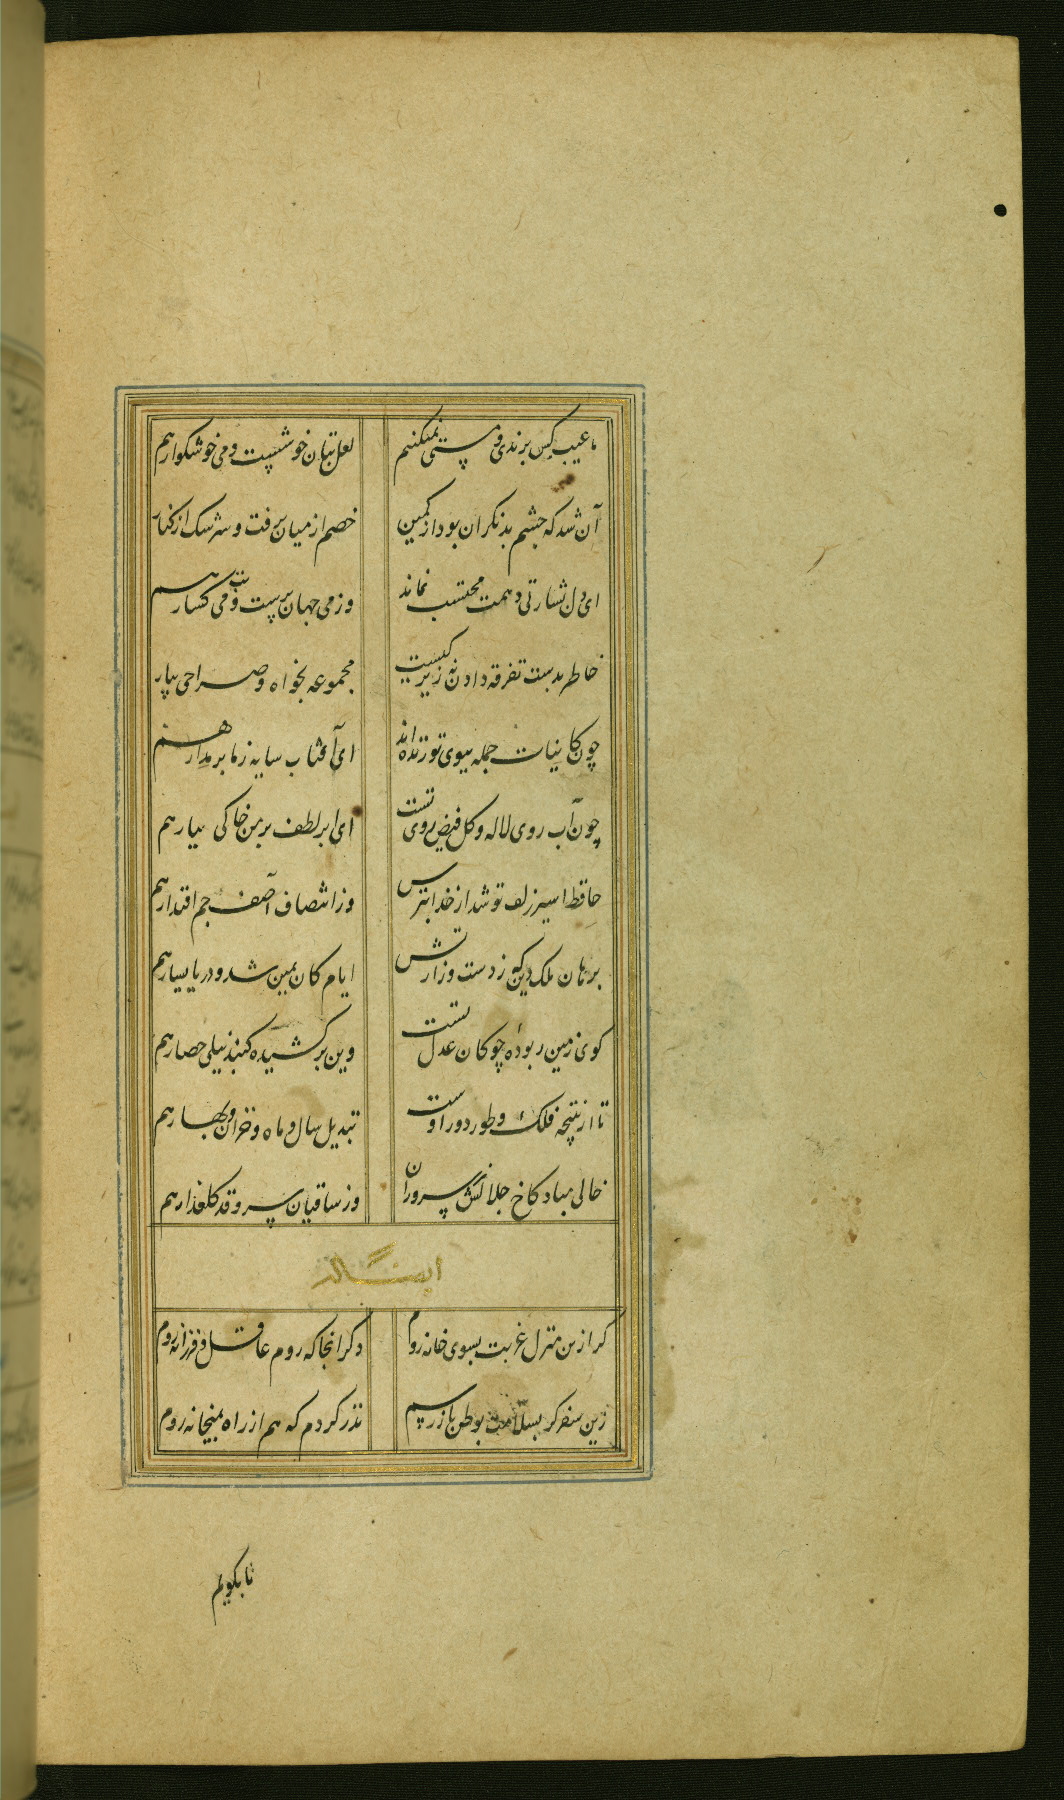 ما عیب کس برندی و مستی نمیکنیم لعل بتان خوشست و می خوشکوار هم
آن شد که چشم بد نکران بود از کمین خصم از میان برفت و سرشک از کنار
ای دل بشارتی دهمت محتسب نماند وز می جهان پرست و بت می کسار هم
خاطر بدست تفرقه دادن نه زیرکیست مجموعه بخواه و صراحی بیار
چون کاینات جمله ببوی تو زنده‌اند ای آفتاب سایه ز ما برمدار هم
چون آب روی لاله و کل فیض روی تست ای ابر لطف بر من خاکی ببار هم
حافظ اسیر زلف تو شد از خدا بترس وز انتصاف آصف جم اقتدار هم
برهان ملک دین که ز دست وزارتش ایام کان یمین شد و دریا یسار هم
کوی زمین ربوده چوکان عدل تست وین برکشیده کنبد نیلی حصار هم
تا از نتیجه فلک و طور دور اوست تبدیل سال و ماه و خزان و بهار هم
خالی مباد کاخ جلالش ز سروران وز ساقیان سرو قد کلعذار هم
ایضاً له
کر ازین منزل غربت بسوی خانه روم دکر انجا که روم عاقل و فرزانه روم
زین سفر کر بسلامت بوطن باز رسم نذر کردم که هم از راه بمیخانه روم
تا بکویم